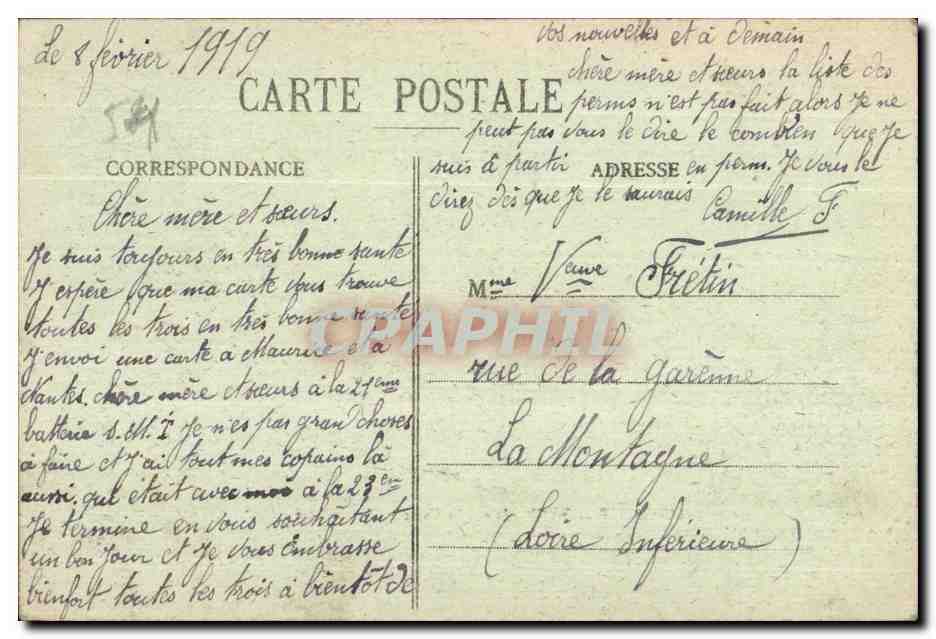 Le 8 février 1919
CARTE POSTALE
CORRESPONDANCE
Chère mère et sœurs.
Je suis toujours en très bonne sante
J'espère que ma carte vous trouve
toutes les trois en très bonne sante
J'envoi une carte à Maurice et à
Nantes. chère mère et sœurs à la 21eme
batterie S.M.I Je n'es pas grand choses
à faire et J'ai tout mes copains là
aussi. que était avec moi à la 23em
Je termine en vous souhaitant
un bon Jour et Je vous embrasse
bienfort toutes les trois à bientôt de
vos nouvelles et à demain
chère mère et sœurs la liste des
perms n'est pas fait alors Je ne
peut pas vous le dire le combien que Je
suis à partir en perm. Je vous le
direz dès que Je le saurais
Camille F
ADRESSE
Mme Veuve Frétin
rue de la garènne
La Montagne
(Loire Inférieure)
CPAPHIL